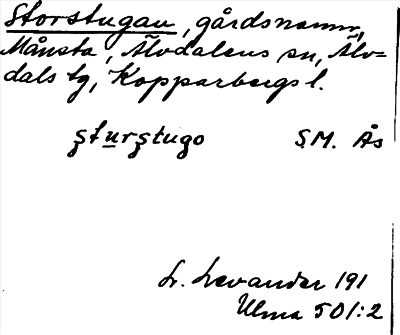 Storstugan, gårdsnamn,
Månsta, Älvdalens sn, Älv=
dals tg, Kopparbergs l.
șturștugo S.M. Ås
L. Levander 191
Ulma 501:2